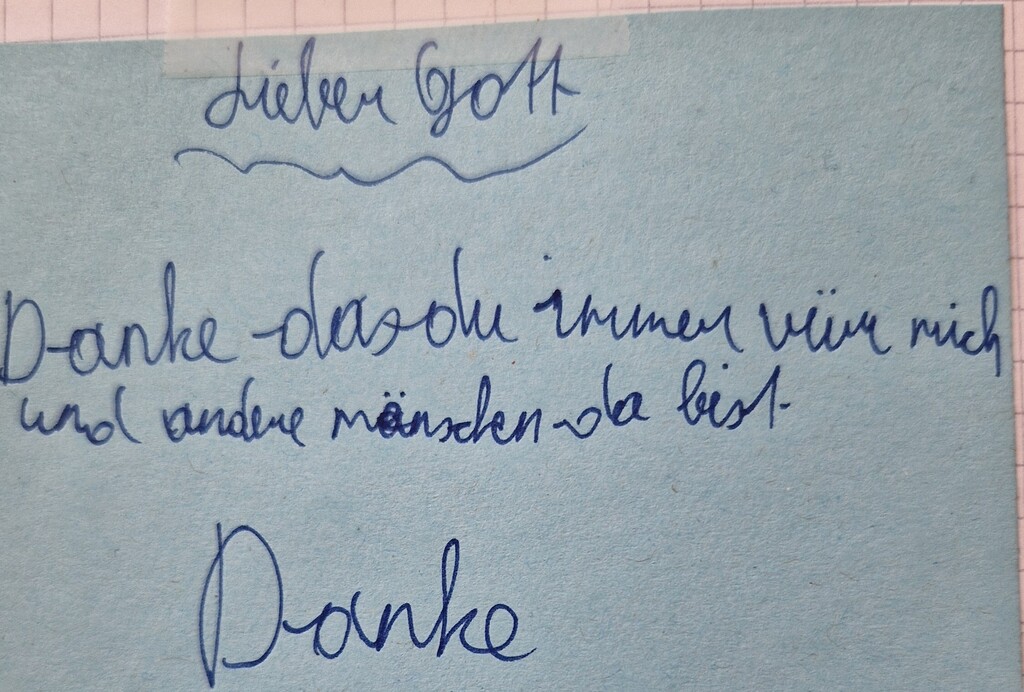 Lieber Gott
Danke das du immer vür mich
und andere mänschen da bist.
Danke